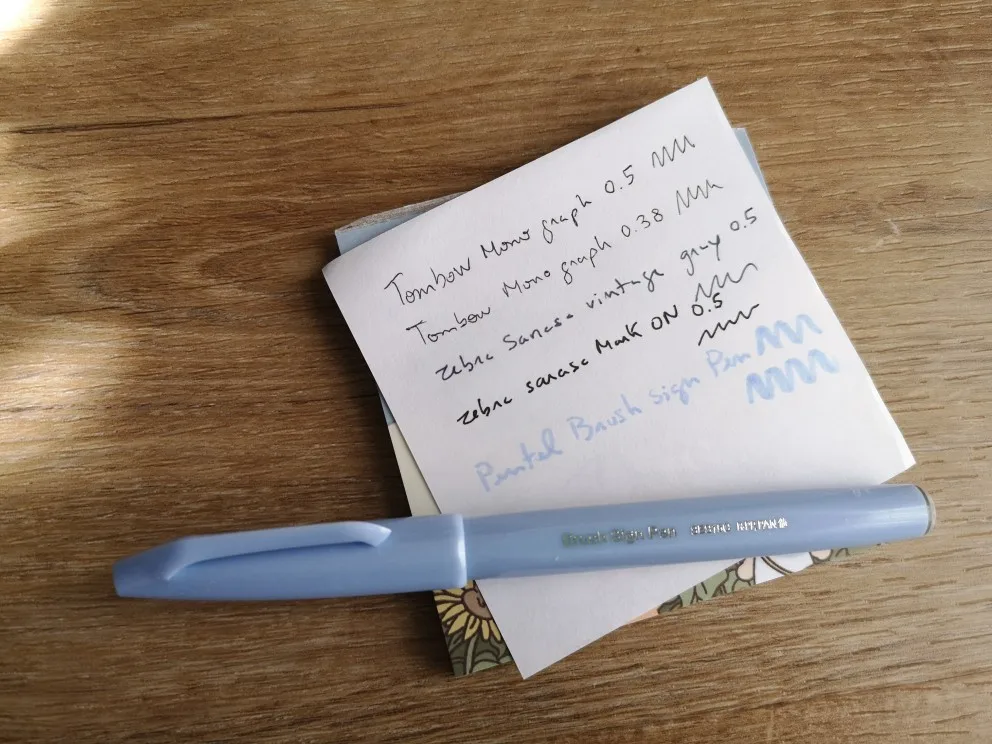 Tombow Mono graph 0.5
Tombow Mono graph 0.38
zebra Sarasa vintage gray 0.5
zebra sarasa Mark ON 0.5
Pentel Brush Sign Pen
Brush Sign Pen